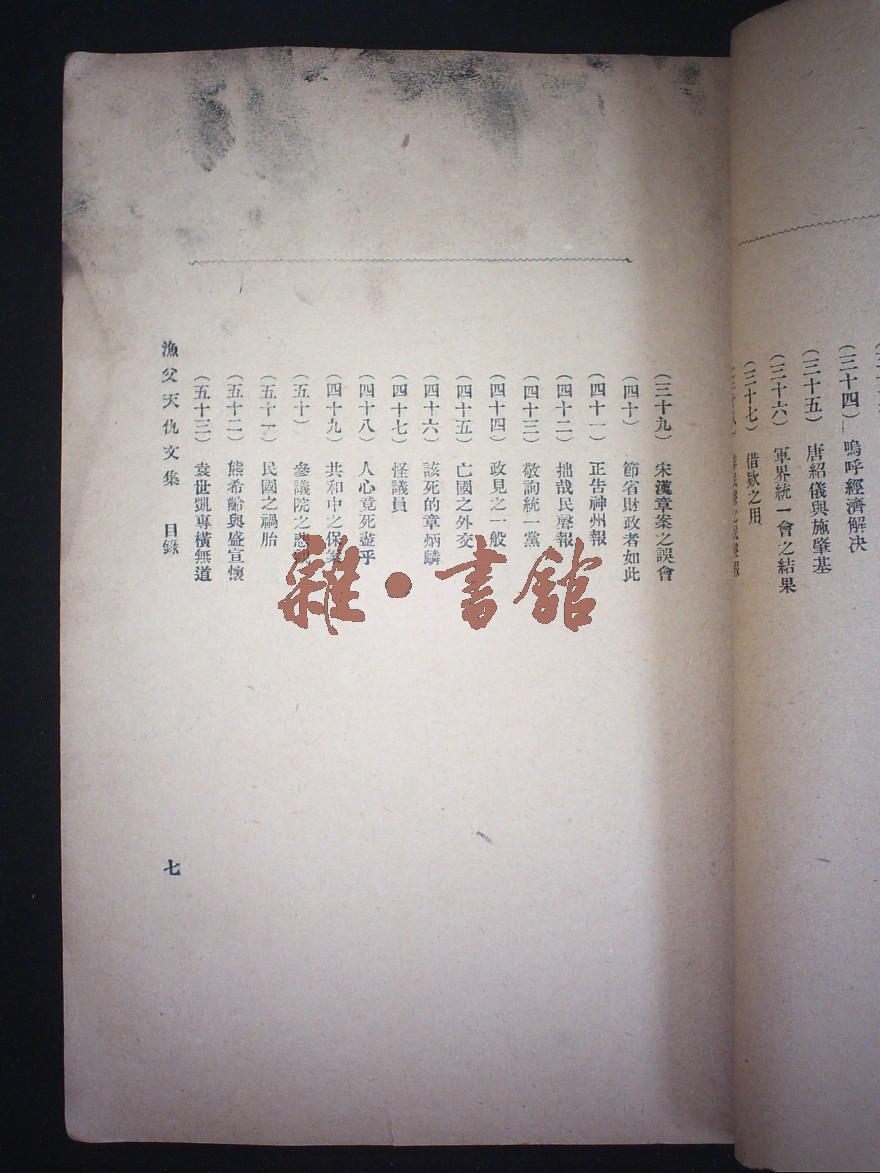 (三十四) 嗚呼經濟解决
(三十五) 唐紹儀與施肇基
(三十六) 軍界統一會之結果
(三十七) 借欵之用
(三十九) 宋漢章案之誤會
(四十) 節省財政者如此
(四十一) 正告神州報
(四十二) 拙哉民聲報
(四十三) 敬詢統一黨
(四十四) 政見之一般
(四十五) 亡國之外交
(四十六) 該死的章炳麟
(四十七) 怪議員
(四十八) 人心竟死盡乎
(四十九) 共和中之保
(五十) 參議院之悲
(五十一) 民國之禍胎
(五十二) 熊希齡與盛宣懷
(五十三) 袁世凱專橫無道
漁父天仇文集 目錄 七
雜·書館